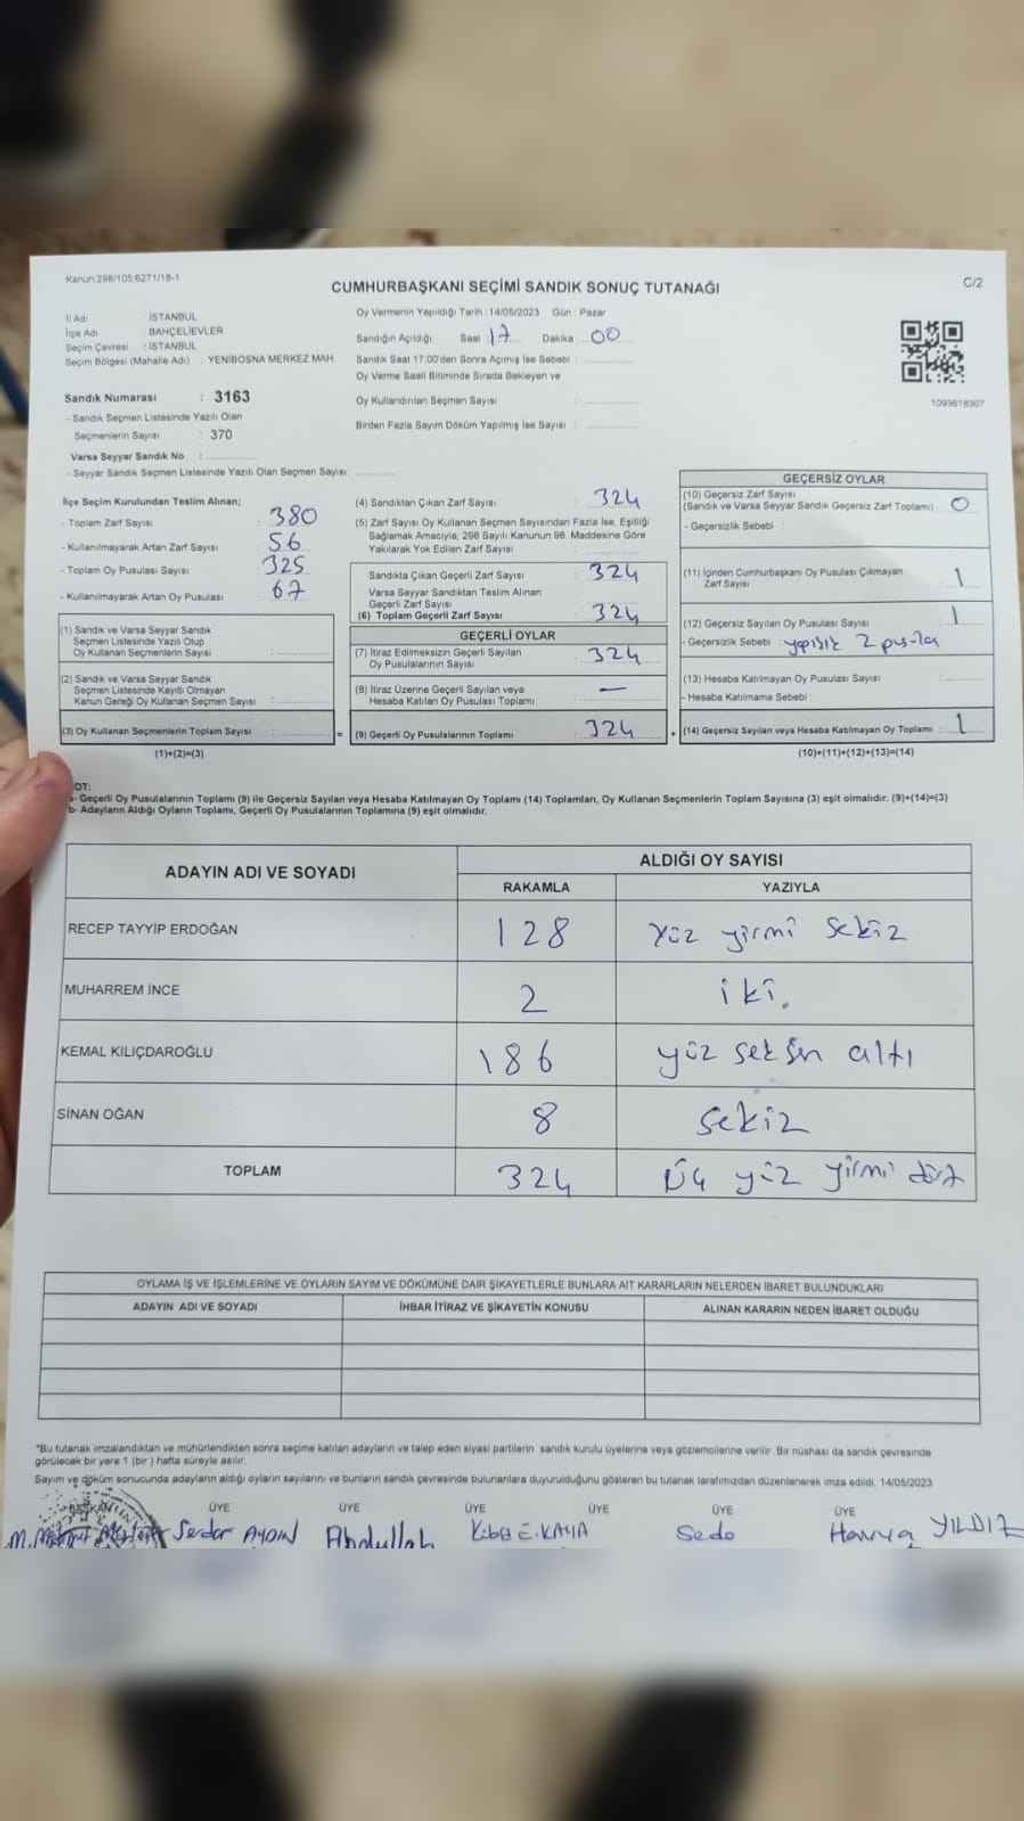 Kanun:298/105:6271/18-1
CUMHURBAŞKANI SEÇİMİ SANDIK SONUÇ TUTANAĞI
C/2
İl Adı : İSTANBUL
İlçe Adı : BAHÇELİEVLER
Seçim Çevresi : İSTANBUL
Seçim Bölgesi (Mahalle Adı) : YENİBOSNA MERKEZ MAH.
Sandık Numarası : 3163
- Sandık Seçmen Listesinde Yazılı Olan
Seçmenlerin Sayısı : 370
Varsa Seyyar Sandık No :
- Seyyar Sandık Seçmen Listesinde Yazılı Olan Seçmen Sayısı
Oy Vermenin Yapıldığı Tarih : 14/05/2023 Gün : Pazar
Sandığın Açıldığı Saat 17 Dakika 00
Sandık Saat 17:00'den Sonra Açılmış İse Sebebi :
Oy Verme Saati Bitiminde Sırada Bekleyen ve
Oy Kullandırılan Seçmen Sayısı :
Birden Fazla Sayım Döküm Yapılmış İse Sayısı :
1093618307
İlçe Seçim Kurulundan Teslim Alınan;
- Toplam Zarf Sayısı : 380
- Kullanılmayarak Artan Zarf Sayısı : 56
- Toplam Oy Pusulası Sayısı : 325
- Kullanılmayarak Artan Oy Pusulası : 67
(1) Sandık ve Varsa Seyyar Sandık
Seçmen Listesinde Yazılı Olup
Oy Kullanan Seçmenlerin Sayısı :
(2) Sandık ve Varsa Seyyar Sandık
Seçmen Listesinde Kayıtlı Olmayan
Kanun Gereği Oy Kullanan Seçmen Sayısı :
(3) Oy Kullanan Seçmenlerin Toplam Sayısı : =
(1)+(2)=(3)
(4) Sandıktan Çıkan Zarf Sayısı : 324
(5) Zarf Sayısı Oy Kullanan Seçmen Sayısından Fazla İse, Eşitliği
Sağlamak Amacıyla; 298 Sayılı Kanunun 98. Maddesine Göre
Yakılarak Yok Edilen Zarf Sayısı :
Sandıkta Çıkan Geçerli Zarf Sayısı 324
Varsa Seyyar Sandıktan Teslim Alınan
Geçerli Zarf Sayısı
(6) Toplam Geçerli Zarf Sayısı 324
GEÇERLİ OYLAR
(7) İtiraz Edilmeksizin Geçerli Sayılan
Oy Pusulalarının Sayısı : 324
(8) İtiraz Üzerine Geçerli Sayılan veya
Hesaba Katılan Oy Pusulası Toplamı : —
(9) Geçerli Oy Pusulalarının Toplamı : 324 +
GEÇERSİZ OYLAR
(10) Geçersiz Zarf Sayısı
(Sandık ve Varsa Seyyar Sandık Geçersiz Zarf Toplamı) : 0
- Geçersizlik Sebebi :
(11) İçinden Cumhurbaşkanı Oy Pusulası Çıkmayan
Zarf Sayısı : 1
(12) Geçersiz Sayılan Oy Pusulası Sayısı : 1
- Geçersizlik Sebebi : yapışık 2 pusula
(13) Hesaba Katılmayan Oy Pusulası Sayısı :
- Hesaba Katılmama Sebebi :
(14) Geçersiz Sayılan veya Hesaba Katılmayan Oy Toplamı : 1
(10)+(11)+(12)+(13)=(14)
OT:
a- Geçerli Oy Pusulalarının Toplamı (9) ile Geçersiz Sayılan veya Hesaba Katılmayan Oy Toplamı (14) Toplamları, Oy Kullanan Seçmenlerin Toplam Sayısına (3) eşit olmalıdır. (9)+(14)=(3)
b- Adayların Aldığı Oyların Toplamı, Geçerli Oy Pusulalarının Toplamına (9) eşit olmalıdır.
ADAYIN ADI VE SOYADI
ALDIĞI OY SAYISI
RAKAMLA YAZIYLA
RECEP TAYYİP ERDOĞAN 128 yüz yirmi sekiz
MUHARREM İNCE 2 iki.
KEMAL KILIÇDAROĞLU 186 yüz seksen altı
SİNAN OĞAN 8 sekiz
TOPLAM 324 Üç yüz yirmi dört
OYLAMA İŞ VE İŞLEMLERİNE VE OYLARIN SAYIM VE DÖKÜMÜNE DAİR ŞİKAYETLERLE BUNLARA AİT KARARLARIN NELERDEN İBARET BULUNDUKLARI
ADAYIN ADI VE SOYADI İHBAR İTİRAZ VE ŞİKAYETİN KONUSU ALINAN KARARIN NEDEN İBARET OLDUĞU
"Bu tutanak imzalandıktan ve mühürlendikten sonra seçime katılan adayların ve talep eden siyasi partilerin sandık kurulu üyelerine veya gözlemcilerine verilir. Bir nüshası da sandık çevresinde
görülecek bir yere 1 (bir) hafta süreyle asılır.
Sayım ve döküm sonucunda adayların aldığı oyların sayılarını ve bunların sandık çevresinde bulunanlara duyurulduğunu gösteren bu tutanak tarafımızdan düzenlenerek imza edildi. 14/05/2023
BAŞKAN ÜYE ÜYE ÜYE ÜYE ÜYE ÜYE
Serdar AYDIN Abdullah Seda YILDIZ